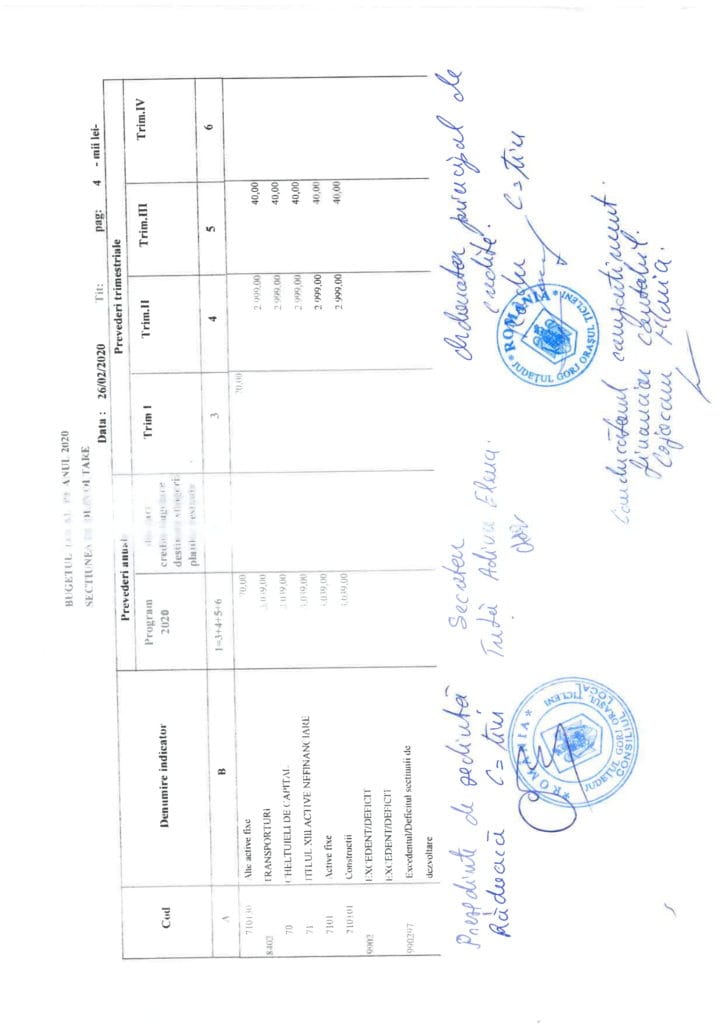 BUGETUL LOCAL PE ANUL 2020
SECTIUNEA DE DEZVOLTARE
Data : 26/02/2020 Trit: pag: 4 - mii lei-
Cod Denumire indicator Prevederi anuale Prevederi trimestriale
Program 2020 credite bugetare Trim I Trim.II Trim.III Trim.IV
A B 1=3+4+5+6 3 4 5 6
710130 Alte active fixe 70,00 70,00
8402 TRANSPORTURI 3.039,00 2.999,00 40,00
70 CHELTUIELI DE CAPITAL 3.039,00 2.999,00 40,00
71 TITLUL XIII ACTIVE NEFINANCIARE 3.039,00 2.999,00 40,00
7101 Active fixe 3.039,00 2.999,00 40,00
710101 Constructii 3.039,00 2.999,00 40,00
9902 EXCEDENT/DEFICIT
EXCEDENT/DEFICIT
990297 Excedentul/Deficitul sectiunii de
dezvoltare
Președinte de ședință
Răducă C-tin
ROMÂNIA
JUDEȚUL GORJ ORAȘUL ȚICLENI
CONSILIUL LOCAL
Secretar
Adina Elena
Ordonator principal de
credite
C-tin
ROMÂNIA
JUDEȚUL GORJ ORAȘUL ȚICLENI
Conducătorul compartiment
financiar contabil
Cojocaru Maria